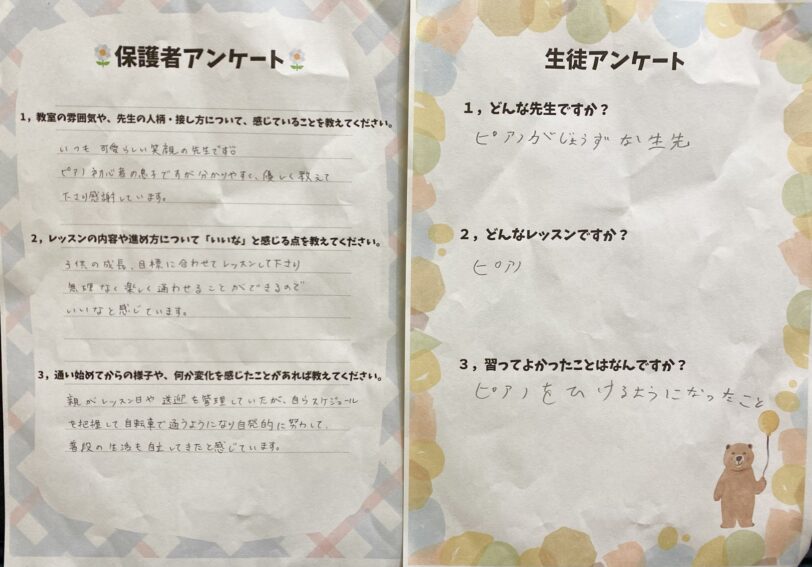 保護者アンケート
1，教室の雰囲気や、先生の人柄・接し方について、感じていることを教えてください。
いつも 可愛らしい笑顔の先生です。
ピアノ初心者の息子ですが分かりやすく、優しく教えて
下さり感謝しています。
2，レッスンの内容や進め方について「いいな」と感じる点を教えてください。
子供の成長、目標に合わせてレッスンして下さり
無理なく楽しく通わせることができるので
いいなと感じています。
3，通い始めてからの様子や、何か変化を感じたことがあれば教えてください。
親がレッスン日や送迎を管理していたが、自らスケジュール
を把握して自転車で通うようになり自発的に努力して、
普段の生活も自立してきたと感じています。
生徒アンケート
1，どんな先生ですか？
ピアノがじょうずな生先
2，どんなレッスンですか？
ピアノ
3，習ってよかったことはなんですか？
ピアノをひけるようになったこと